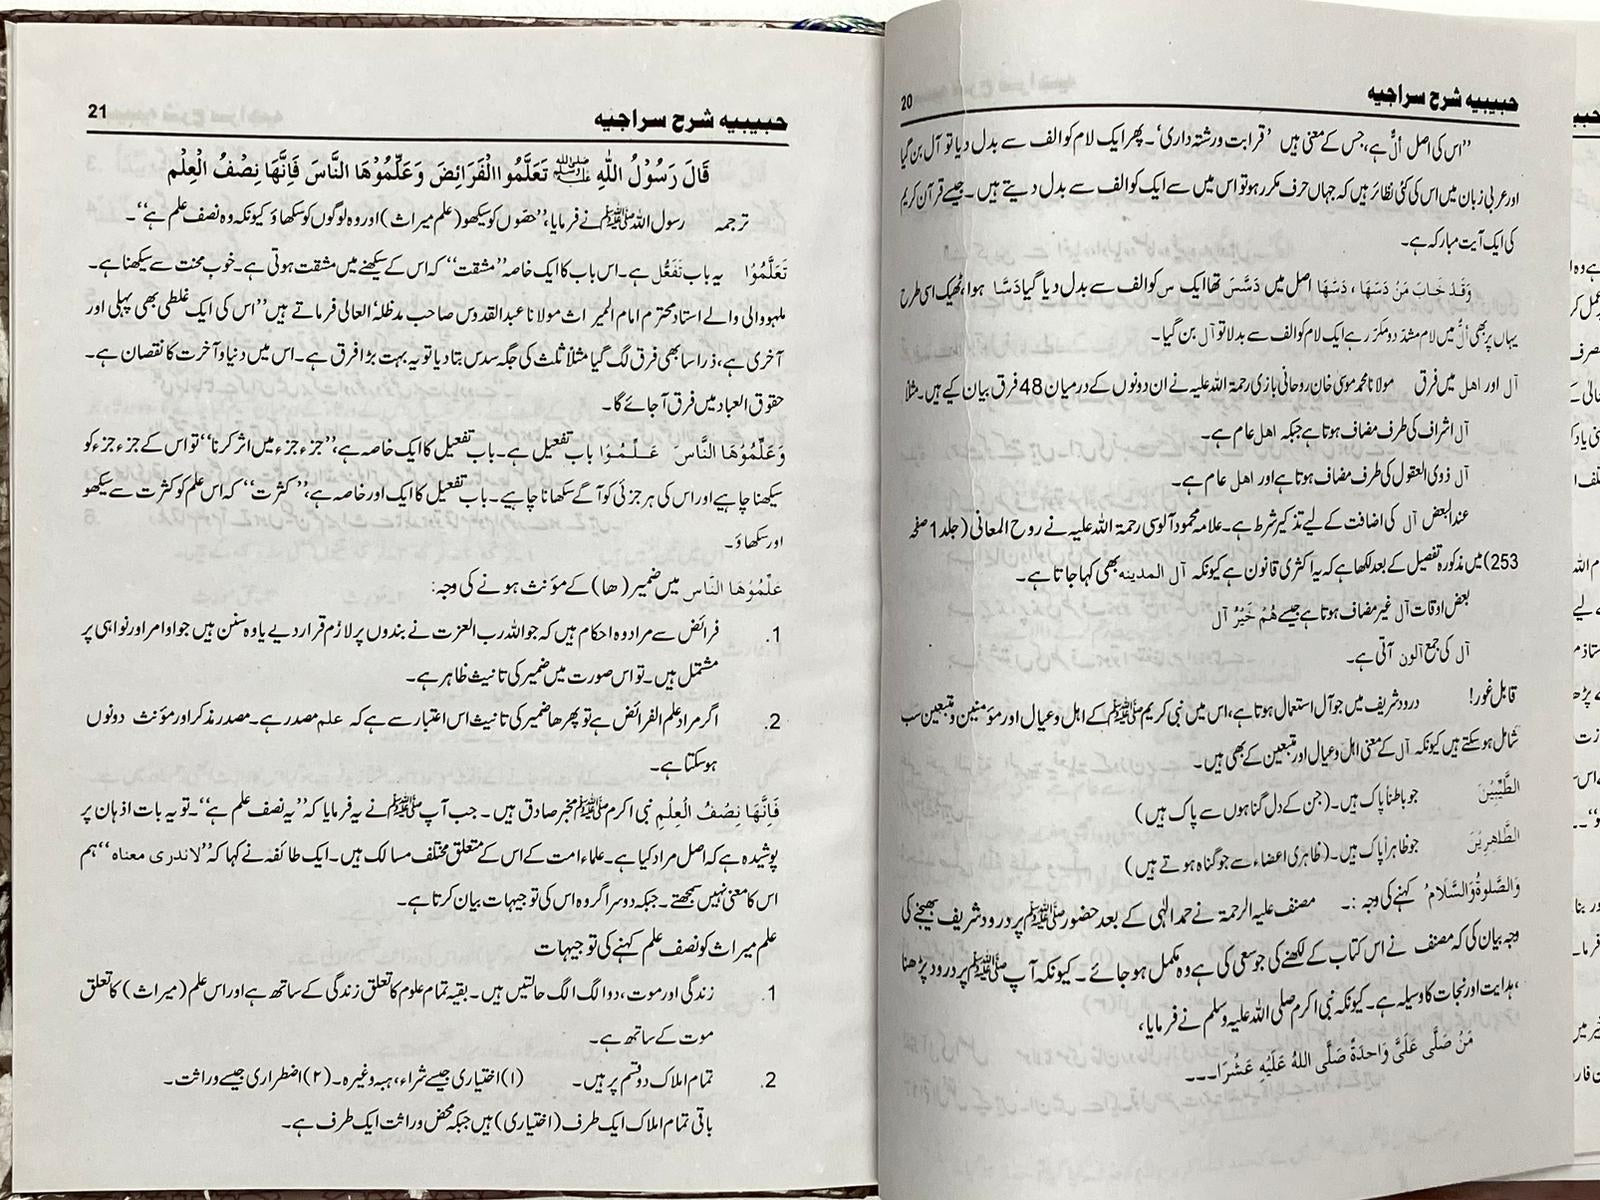 حبیبیہ شرح سراجیہ
20
"اس کی اصل أَلٌّ ہے، جس کے معنی ہیں 'قرابت ورشتہ داری'۔ پھر ایک لام کو الف سے بدل دیا تو آل بن گیا
اور عربی زبان میں اس کی کئی نظائر ہیں کہ جہاں حرف مکرر ہو تو اس میں سے ایک کو الف سے بدل دیتے ہیں۔ جیسے قرآن کریم
کی ایک آیت مبارکہ ہے۔
وَقَدْ خَابَ مَنْ دَسّٰهَا، دَسّٰهَا اصل میں دَسَّسَ تھا ایک س کو الف سے بدل دیا گیا دَسَّا ہوا، ٹھیک اسی طرح
یہاں پر بھی أَلٌّ میں لام مشدد و مکرر ہے ایک لام کو الف سے بدلا تو آل بن گیا۔
آل اور اهل میں فرق مولانا محمد موسیٰ خان روحانی بازی رحمۃ اللہ علیہ نے ان دونوں کے درمیان 48 فرق بیان کیے ہیں۔ مثلاً
آل اشراف کی طرف مضاف ہوتا ہے جبکہ اهل عام ہے۔
آل ذوی العقول کی طرف مضاف ہوتا ہے اور اهل عام ہے۔
عند البعض آل کی اضافت کے لیے تذکیر شرط ہے۔ علامہ محمود آلوسی رحمۃ اللہ علیہ نے روح المعانی (جلد 1 صفحہ
253) میں مذکورہ تفصیل کے بعد لکھا ہے کہ یہ اکثری قانون ہے کیونکہ آل المدینه بھی کہا جاتا ہے۔
بعض اوقات آل غیر مضاف ہوتا ہے جیسے هُمْ خَيْرُ آل
آل کی جمع آلون آتی ہے۔
قابل غور! درود شریف میں جو آل استعمال ہوتا ہے، اس میں نبی کریم ﷺ کے اہل و عیال اور مؤمنین و متبعین سب
شامل ہو سکتے ہیں کیونکہ آل کے معنی اہل و عیال اور متبعین کے بھی ہیں۔
الطَّيِّبِيْنَ جو باطناً پاک ہیں۔ (جن کے دل گناہوں سے پاک ہیں)
الطَّاهِرِيْنَ جو ظاہراً پاک ہیں۔ (ظاہری اعضاء سے جو گناہ ہوتے ہیں)
وَالصَّلٰوةُ وَالسَّلَامُ کہنے کی وجہ :۔ مصنف علیہ الرحمۃ نے حمد الٰہی کے بعد حضور ﷺ پر درود شریف بھیجنے کی
وجہ بیان کی کہ مصنف نے اس کتاب کے لکھنے کی جو سعی کی ہے وہ مکمل ہو جائے۔ کیونکہ آپ ﷺ پر درود پڑھنا
ہدایت اور نجات کا وسیلہ ہے۔ کیونکہ نبی اکرم صلی اللہ علیہ وسلم نے فرمایا،
مَنْ صَلَّى عَلَيَّ وَاحِدَةً صَلَّى اللهُ عَلَيْهِ عَشْرًا۔۔۔
حبیبیہ شرح سراجیہ
21
قَالَ رَسُوْلُ اللّٰهِ ﷺ تَعَلَّمُوا الْفَرَائِضَ وَعَلِّمُوْهَا النَّاسَ فَاِنَّهَا نِصْفُ الْعِلْم
ترجمہ رسول اللہ ﷺ نے فرمایا، "حصّوں کو سیکھو (علم میراث) اور وہ لوگوں کو سکھاؤ کیونکہ وہ نصف علم ہے"۔
تَعَلَّمُوْا یہ باب تَفَعُّل ہے۔ اس باب کا ایک خاصہ "مشقت" کہ اس کے سیکھنے میں مشقت ہوتی ہے۔ خوب محنت سے سیکھنا ہے۔
ملہووالی والے استاد محترم امام المیراث مولانا عبدالقدوس صاحب مدظلہٗ العالی فرماتے ہیں "اس کی ایک غلطی بھی پہلی اور
آخری ہے، ذرا سا بھی فرق لگ گیا مثلاً ثلث کی جگہ سدس بتا دیا تو یہ بہت بڑا فرق ہے۔ اس میں دنیا و آخرت کا نقصان ہے۔
حقوق العباد میں فرق آ جائے گا۔
وَعَلِّمُوْهَا النَّاسَ عَلِّمُوْا باب تفعیل ہے۔ باب تفعیل کا ایک خاصہ ہے، "جزء جزء میں اثر کرنا" تو اس کے جزء جزء کو
سیکھنا چاہیے اور اس کی ہر جزئی کو آگے سکھانا چاہیے۔ باب تفعیل کا ایک اور خاصہ ہے، "کثرت" کہ اس علم کو کثرت سے سیکھو
اور سکھاؤ۔
عَلِّمُوْهَا النَّاس میں ضمیر (ھا) کے مؤنث ہونے کی وجہ:
1. فرائض سے مراد وہ احکام ہیں کہ جو اللہ رب العزت نے بندوں پر لازم قرار دیے یا وہ سنن ہیں جو اوامر اور نواہی پر
مشتمل ہیں۔ تو اس صورت میں ضمیر کی تانیث ظاہر ہے۔
2. اگر مراد علم الفرائض ہے تو پھر ھا ضمیر کی تانیث اس اعتبار سے ہے کہ علم مصدر ہے۔ مصدر مذکر اور مؤنث دونوں
ہو سکتا ہے۔
فَاِنَّهَا نِصْفُ الْعِلْمِ نبی اکرم ﷺ مخبر صادق ہیں۔ جب آپ ﷺ نے یہ فرمایا کہ "یہ نصف علم ہے"۔ تو یہ بات اذہان پر
پوشیدہ ہے کہ اصل مراد کیا ہے۔ علماء امت کے اس کے متعلق مختلف مسالک ہیں۔ ایک طائفہ نے کہا کہ "لاندری معناه" ہم
اس کا معنی نہیں سمجھتے۔ جبکہ دوسرا گروہ اس کی توجیہات بیان کرتا ہے۔
علم میراث کو نصف علم کہنے کی توجیہات
1. زندگی اور موت، دو الگ الگ حالتیں ہیں۔ بقیہ تمام علوم کا تعلق زندگی کے ساتھ ہے اور اس علم (میراث) کا تعلق
موت کے ساتھ ہے۔
2. تمام املاک دو قسم پر ہیں۔ (۱) اختیاری جیسے شراء، ہبہ وغیرہ۔ (۲) اضطراری جیسے وراثت۔
باقی تمام املاک ایک طرف (اختیاری) ہیں جبکہ محض وراثت ایک طرف ہے۔